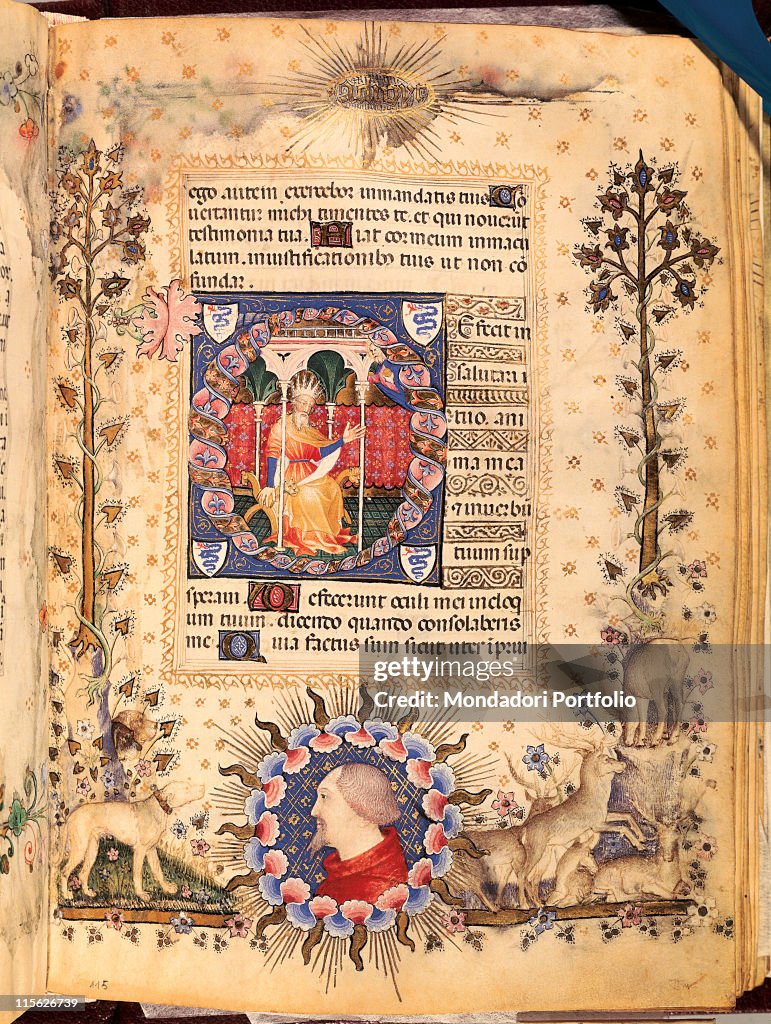 ego autem exercebor in mandatis tuis Co
uertantur michi timentes te. et qui nouerut
testimonia tua. Fiat cor meum inmacu
latum. in iustificationibus tuis ut non co
fundar.
Efecit in
salutari
tuo. ani
ma mea
uerbu
tuum sup
speraui
Defecerunt oculi mei in eloq
um tuum. dicendo quando consolaberis
me Quia factus sum sicut uter in prui
gettyimages
Credit: Mondadori Portfolio
115
115626739